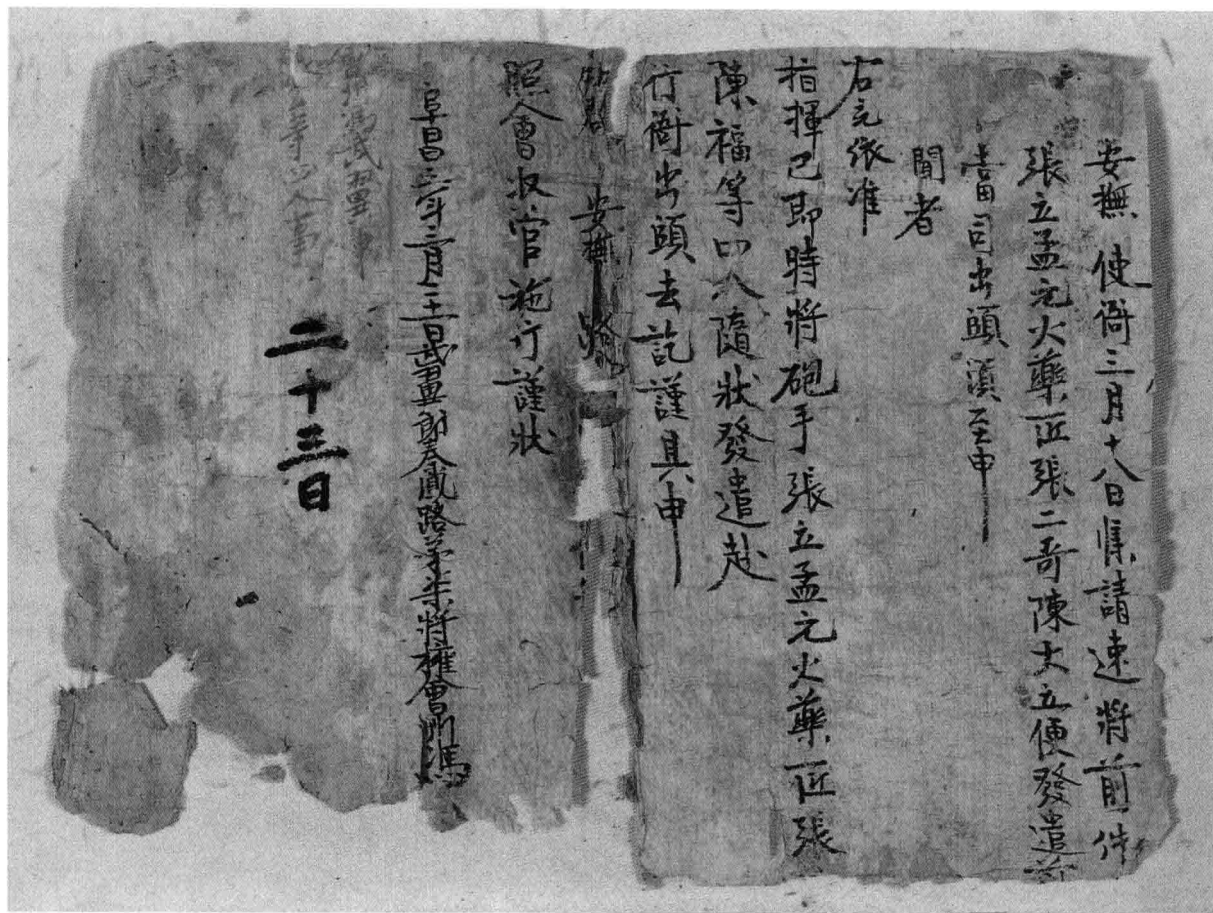 安撫 使衙三月十八日牒請速將前件
張立孟元火藥匠張二哥陳大立便發遣前
當司出頭須至申
聞者
右充依准
指揮已即時將砲手張立孟元火藥匠張
陳福等四人隨狀發遣赴
行衙出頭去訖謹具申
安撫
照會收官施行謹狀
阜昌三年三月 日武翼郎秦鳳路第柒將權會州馮
馮武翼申
等四人事
二十三日